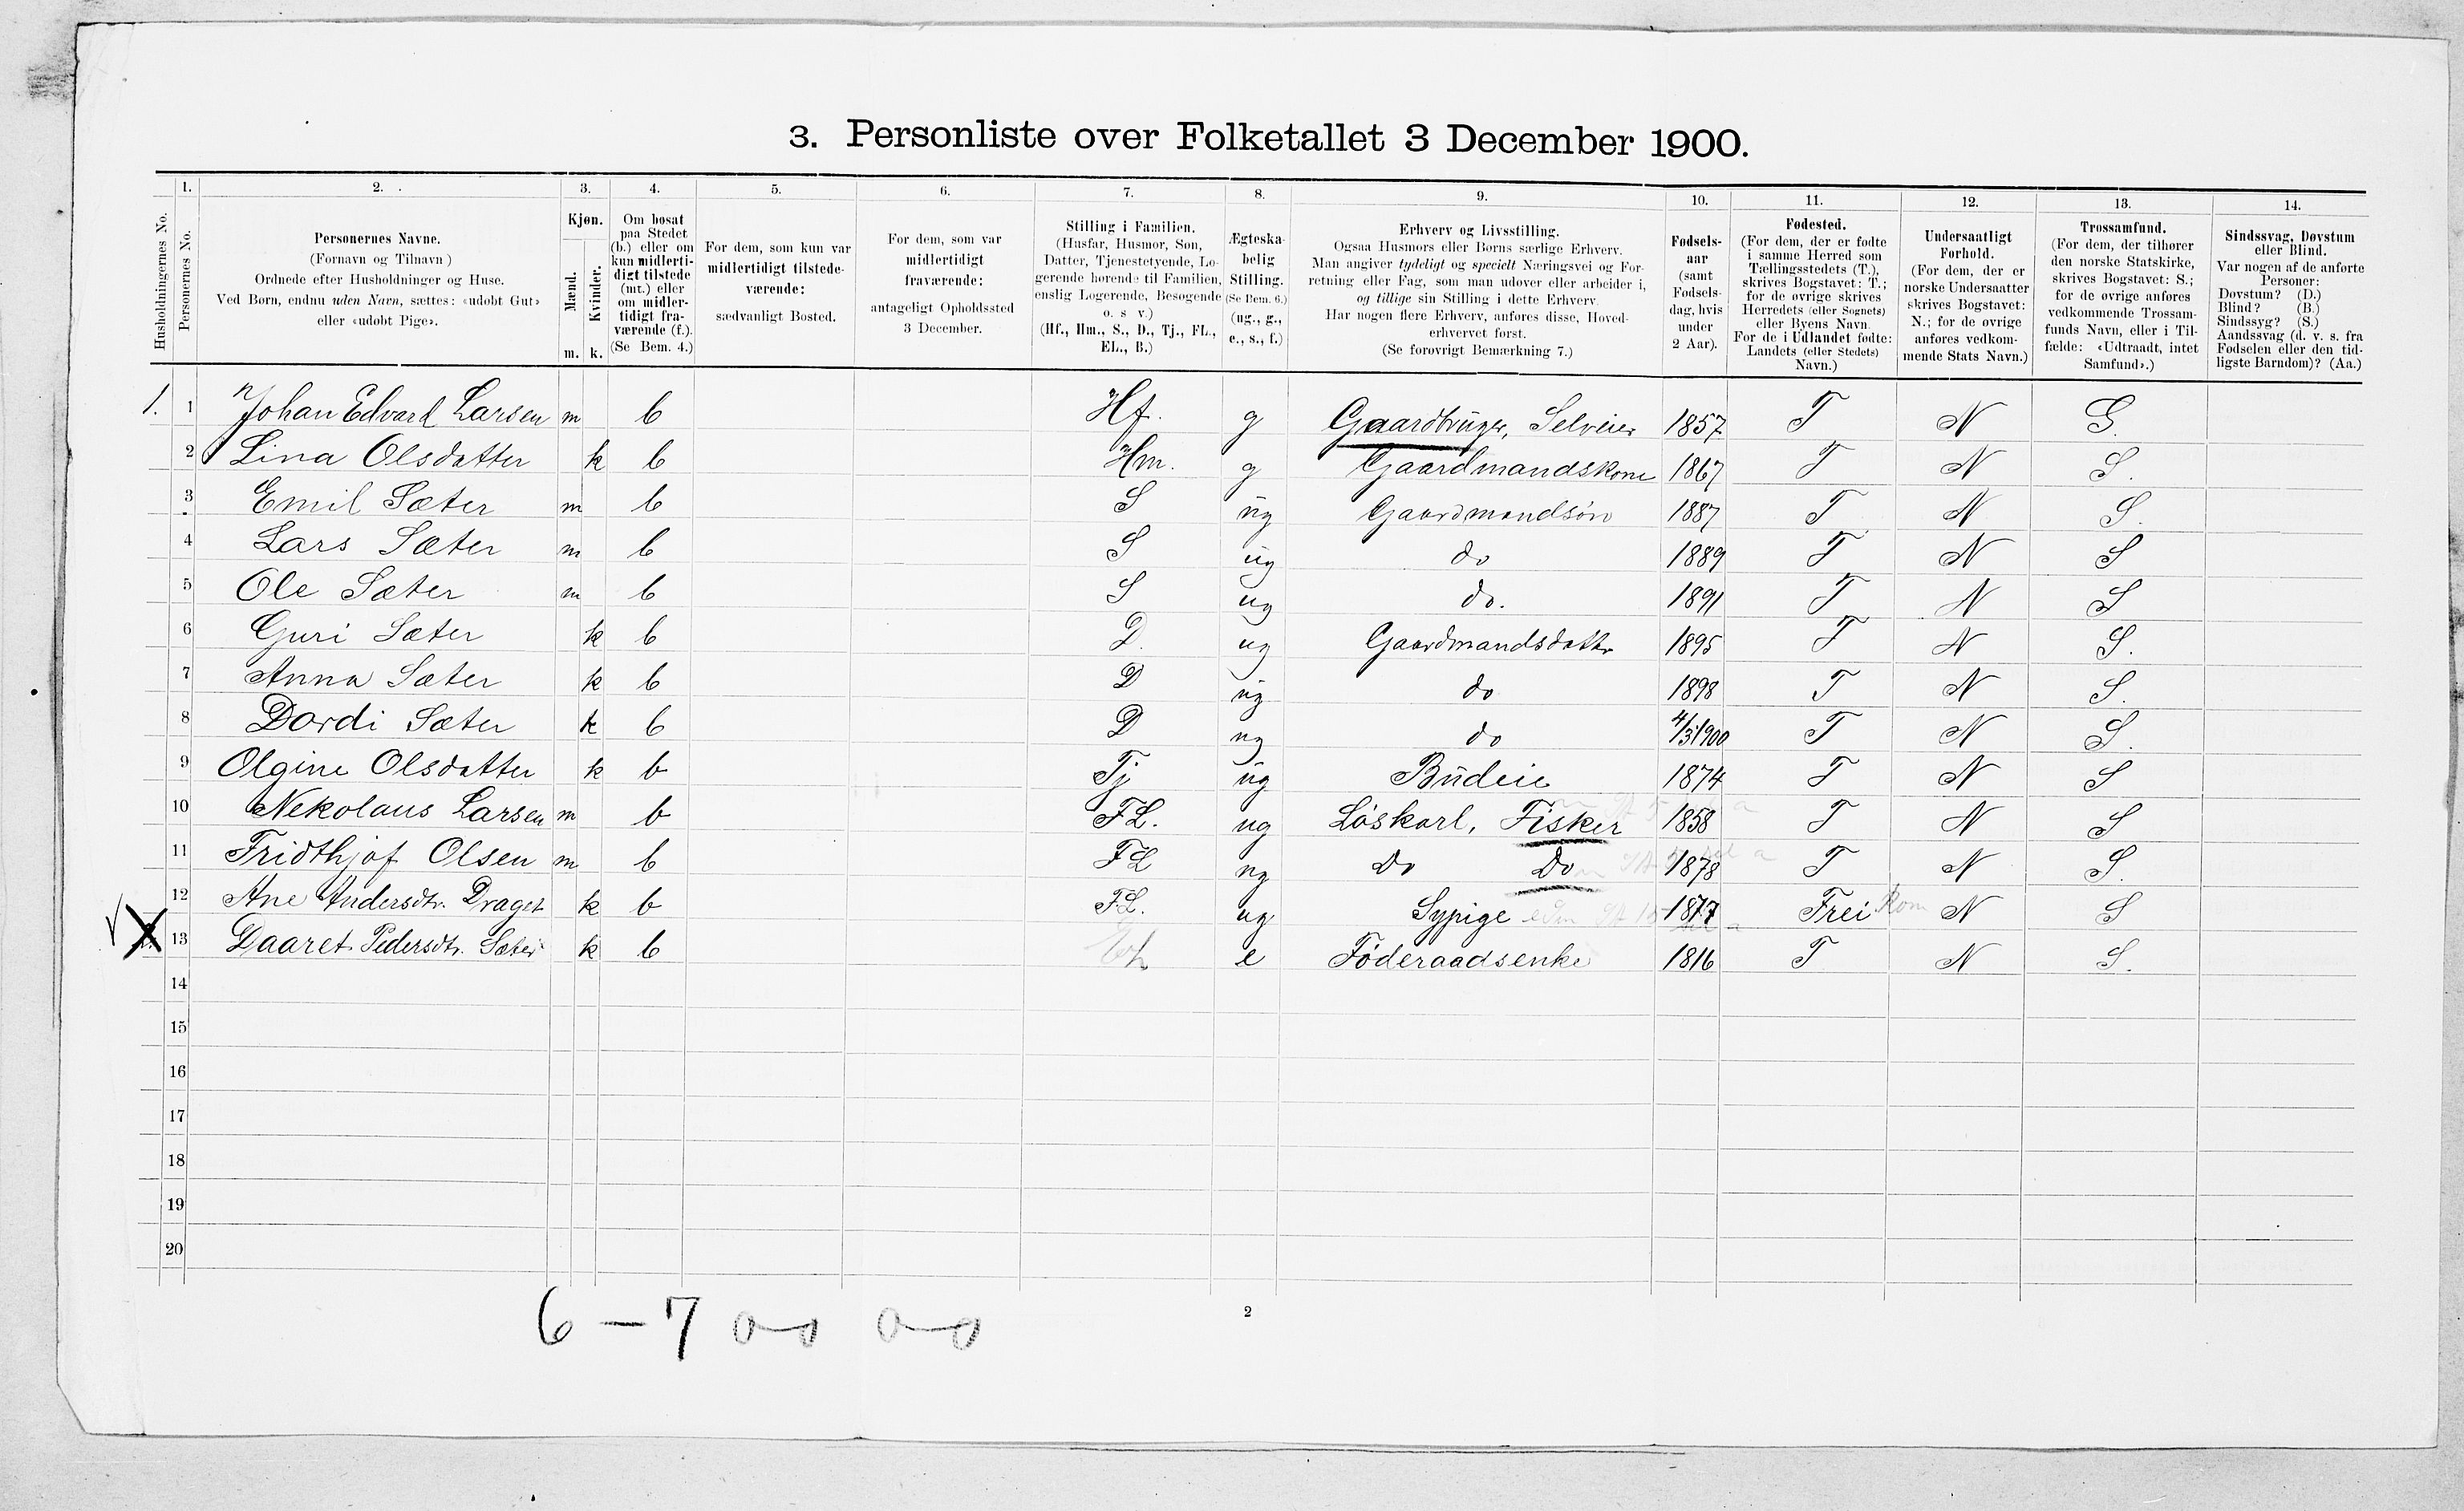 3. Personliste over Folketallet 3 December 1900.
Husholdningernes No.
1. Personernes No.
2. Personernes Navne.
(Fornavn og Tilnavn)
Ordnede efter Husholdninger og Huse.
Ved Børn, endnu uden Navn, sættes: «udøbt Gut»
eller «udøbt Pige».
3. Kjøn.
Mænd. m.
Kvinder. k.
4. Om bosat
paa Stedet
(b.) eller om
kun midlerti-
digt tilstede
(mt.) eller
om midler-
tidigt fra-
værende (f.).
(Se Bem. 4.)
5. For dem, som kun var
midlertidigt tilstede-
værende:
sædvanligt Bosted.
6. For dem, som var
midlertidigt
fraværende:
antageligt Opholdssted
3 December.
7. Stilling i Familien.
(Husfar, Husmor, Søn,
Datter, Tjenestetyende, Lo-
gerende hørende til Familien,
enslig Logerende, Besøgende
o. s v.)
(Hf., Hm., S., D., Tj., FL.,
EL., B.)
8. Ægteska-
belig
Stilling.
(Se Bem. 6.)
(ug., g.,
e., s., f.)
9. Erhverv og Livsstilling.
Ogsaa Husmors eller Børns særlige Erhverv.
Man angiver tydeligt og specielt Næringsvei og For-
retning eller Fag, som man udøver eller arbeider i,
og tillige sin Stilling i dette Erhverv.
Har nogen flere Erhverv, anføres disse, Hoved-
erhvervet først.
(Se forøvrigt Bemærkning 7.)
10. Fødsels-
aar
(samt
Fødsels-
dag, hvis
under
2 Aar).
11. Fødested.
(For dem, der er fødte
i samme Herred som
Tællingsstedets (T.),
skrives Bogstavet: T.;
for de øvrige skrives
Herredets (eller Sognets)
eller Byens Navn.
For de i Udlandet fødte:
Landets (eller Stedets)
Navn.)
12. Undersaatligt
Forhold.
(For dem, der er
norske Undersaatter
skrives Bogstavet:
N.; for de øvrige
anføres vedkom-
mende Stats Navn.)
13. Trossamfund.
(For dem, der tilhører
den norske Statskirke,
skrives Bogstavet: S.;
for de øvrige anføres
vedkommende Trossam-
funds Navn, eller i Til-
fælde: «Udtraadt, intet
Samfund».)
14. Sindssvag, Døvstum
eller Blind.
Var nogen af de anførte
Personer:
Døvstum? (D.)
Blind? (B.)
Sindssyg? (S.)
Aandssvag (d. v. s. fra
Fødselen eller den tid-
ligste Barndom)? (Aa.)
1. 1 Johan Edvard Larsen m b Hf. g Gaardbruger, Selveier 1857 T N S.
2 Lina Olsdatter k b Hm. g Gaardmandskone 1867 T N S.
3 Emil Sæter m b S ug Gaardmandsøn 1887 T N S.
4 Lars Sæter m b S ug do 1889 T N S
5 Ole Sæter m b S ug do. 1891 T N S
6 Guri Sæter k b D. ug Gaardmandsdatter 1895 T N S.
7 Anna Sæter k b D ug do 1898 T N S.
8 Dordi Sæter k b D ug do 4/3 1900 T N S.
9 Olgine Olsdatter k b Tj ug Budeie 1874 T N S
10 Nekolaus Larsen m b FL. ug Løskarl, Fisker 1858 T N S
11 Fridthjof Olsen m b FL ug Do Do 1878 T N S.
12 Ane Andersdtr. Draget k b FL. ug Sypige 1877 Frei Rom N S
13 Daaret Pedersdtr. Sæter k b e Føderaadsenke 1816 T N S.
14
15
16
17
18
19
20
6 – 7 0–0 0–0
2